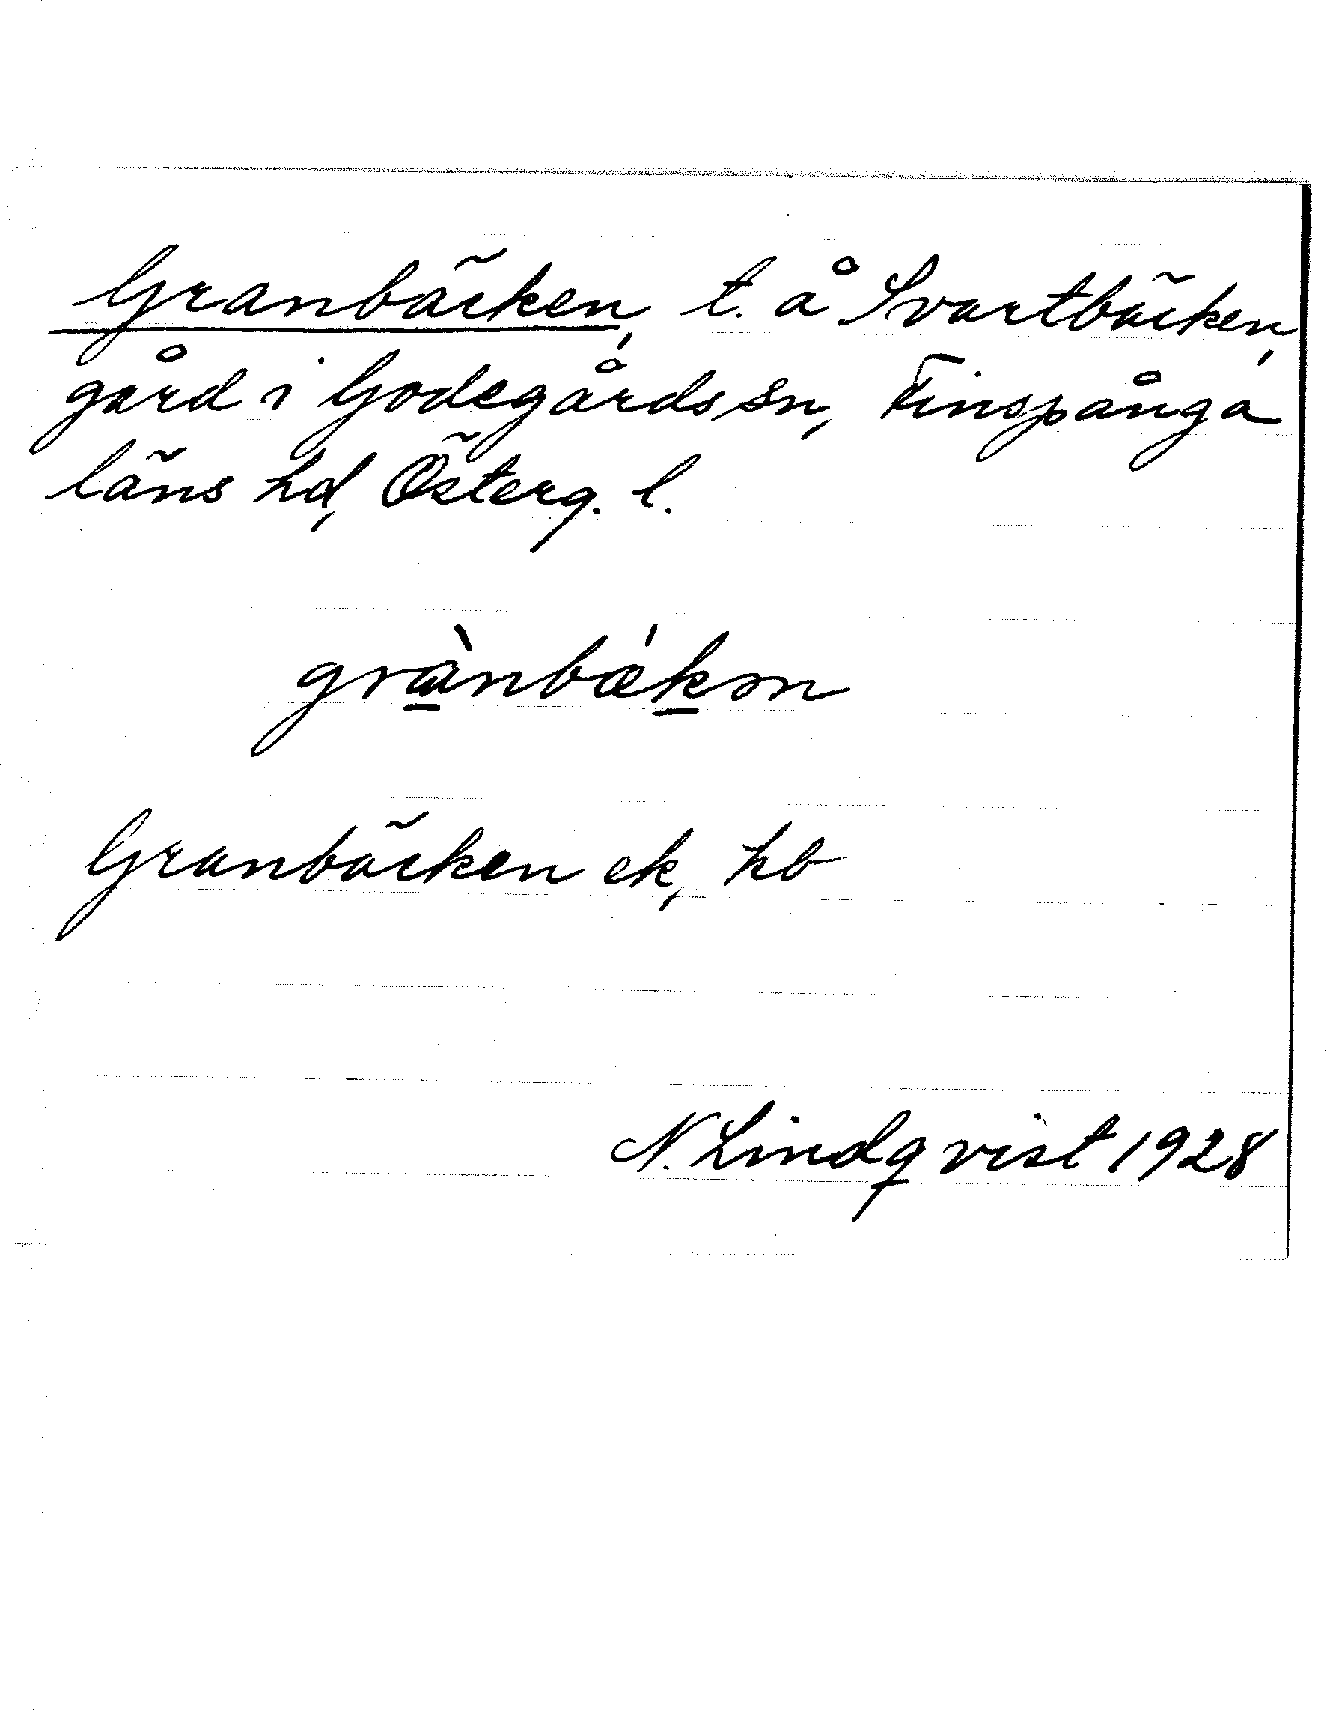 Granbäcken, t. å Svartbäcken,
gård i Godegårds sn, Finspånga
läns hd, Österg. l.
grànbǽkən
Granbäcken ek, hb
N. Lindqvist 1928